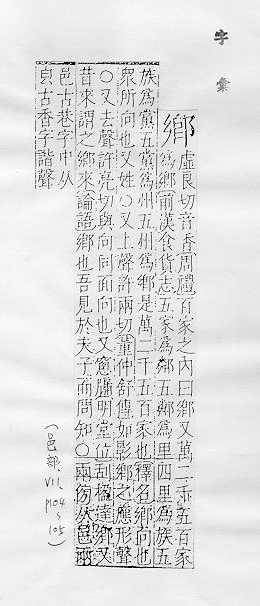 字彙
鄉 虛良切音香周禮百家之內曰鄉又萬二千五百家
為鄉前漢食貨志五家為鄰五鄰為里四里為族五
族為黨五黨為州五州為鄉是萬二千五百家也釋名鄉向也
衆所向也又姓○又上聲許兩切董仲舒傳如影鄉之應形聲
○又去聲許亮切與向同面向也又窻牖明堂位刮楹達鄉又
昔來謂之鄉來論語鄉也吾見於夫子而問知○兩倚从邑
邑古巷字中从
皀古香字諧聲
(邑部, VII, P104~105)